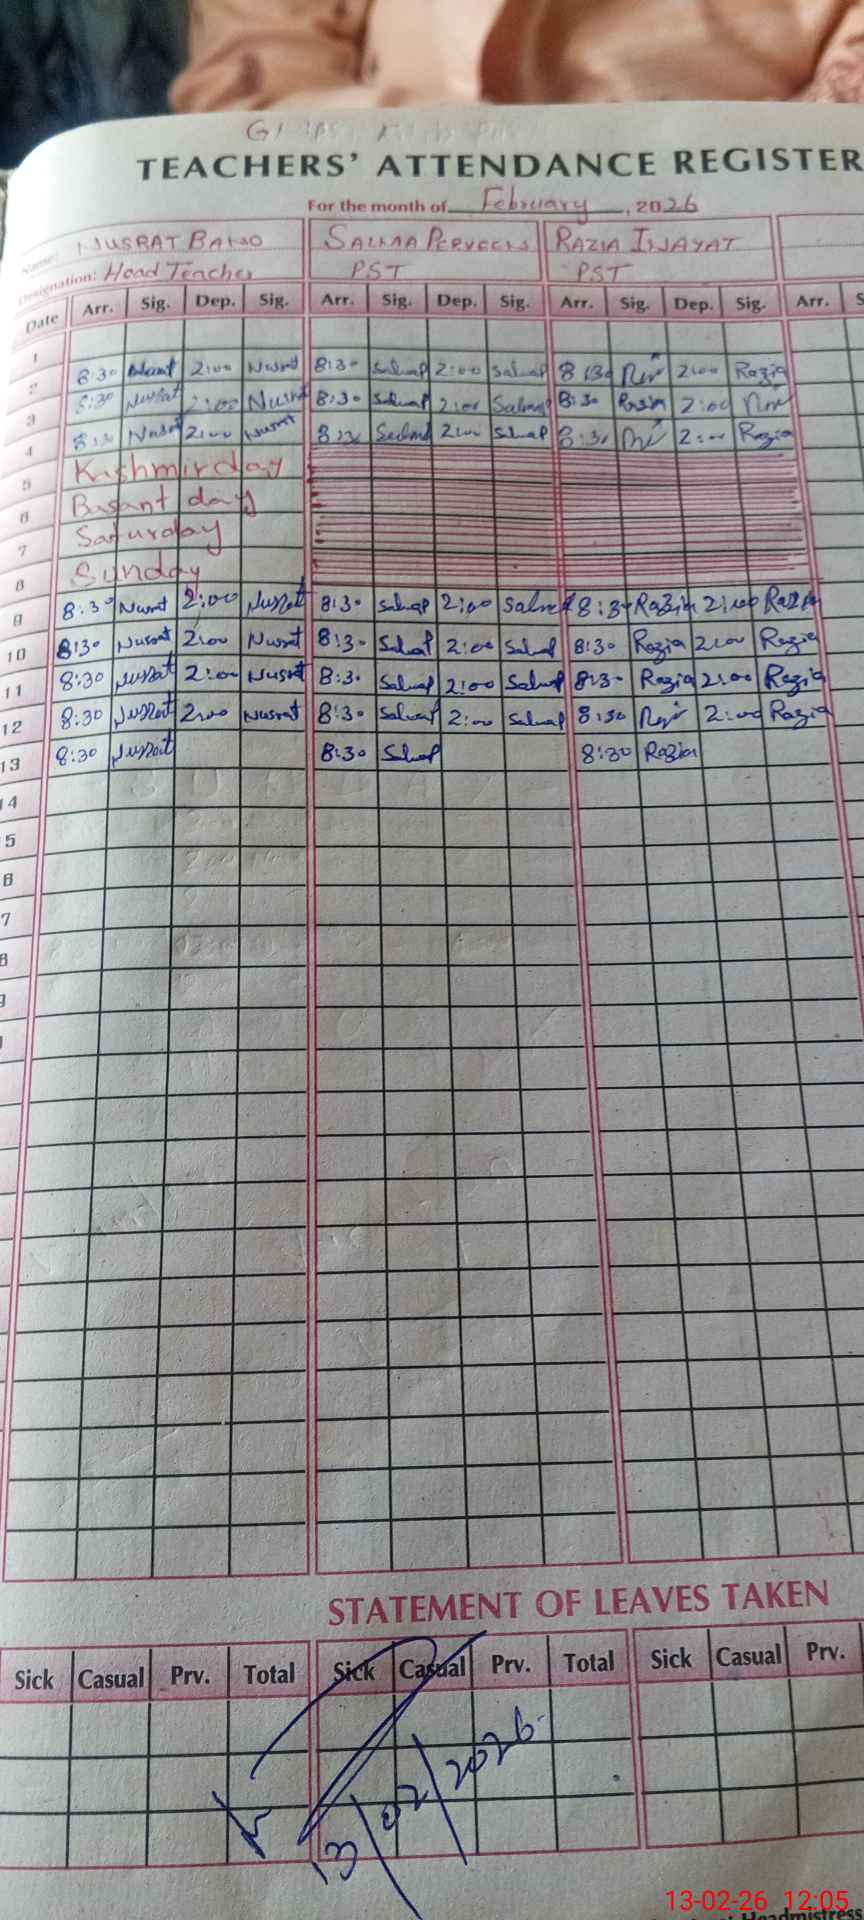 TEACHERS' ATTENDANCE REGISTER
For the month of February, 2026
Name: NUSRAT BANO SALMA PERVEEN RAZIA INAYAT
Designation: Head Teacher PST PST
Date Arr. Sig. Dep. Sig. Arr. Sig. Dep. Sig. Arr. Sig. Dep. Sig. Arr.
1
2 8:30 Nusrat 2:00 Nusrat 8:30 2:00 8:30 2:00 Razia
3 8:30 Nusrat 2:00 Nusrat 8:30 2:00 8:30 Razia 2:00
4 8:30 Nusrat 2:00 Nusrat 8:30 2:00 8:30 2:00 Razia
5 Kashmir day
6 Basant day
7 Saturday
8 Sunday
9 8:30 Nusrat 2:00 Nusrat 8:30 2:00 8:30 Razia 2:00 Razia
10 8:30 Nusrat 2:00 Nusrat 8:30 2:00 8:30 Razia 2:00 Razia
11 8:30 Nusrat 2:00 Nusrat 8:30 2:00 8:30 Razia 2:00 Razia
12 8:30 Nusrat 2:00 Nusrat 8:30 2:00 8:30 2:00 Razia
13 8:30 Nusrat 8:30 8:30 Razia
14
5
6
7
8
9
STATEMENT OF LEAVES TAKEN
Sick Casual Prv. Total Sick Casual Prv. Total Sick Casual Prv.
13/02/2026
13-02-26 12:05
Headmistress